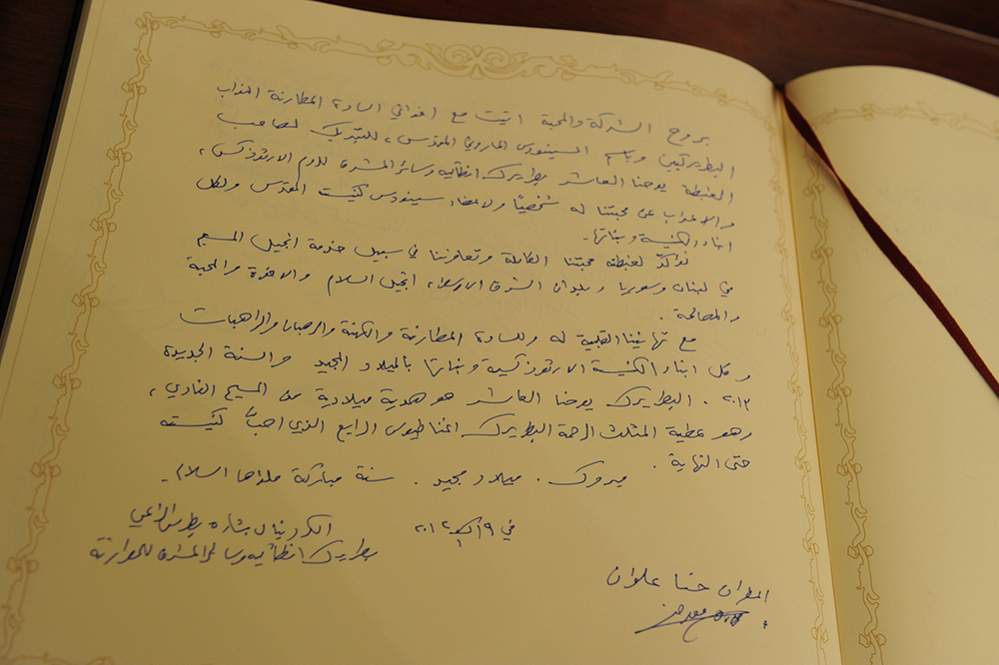 بروح الشركة والمحبة اتيت مع اخوتي السادة المطارنة النواب
البطريركيين وباسم السينودس الماروني المقدس، للتبريك لصاحب
الغبطة يوحنا العاشر بطريرك انطاكيه وسائر المشرق للروم الارثوذكس،
والاعراب عن محبتنا له شخصيًا ولاعضاء سينودس كنيسته المقدس ولكل
ابناء الكنيسة وبناتها.
نؤكد لغبطته محبتنا الكاملة وتعاوننا في سبيل خدمة انجيل المسيح
في لبنان وسوريا وبلدان الشرق الاوسط، انجيل السلام والاخوة والمحبة
والمصالحة.
مع تهانينا القلبية له وللسادة المطارنة والكهنة والرهبان والراهبات
وكل ابناء الكنيسة الارثوذكسية وبناتها بالميلاد المجيد والسنة الجديدة
٢٠١٣. البطريرك يوحنا العاشر هو هدية ميلادية من المسيح الفادي،
وهو عطية المثلث الرحمة البطريرك اغناطيوس الرابع الذي احبّ كنيسته
حتى النهاية.
مبروك. ميلاد مجيد. سنة مباركة ملؤها السلام.
في ١٩ ك١ ٢٠١٢
الكردينال بشاره بطرس الراعي
بطريرك انطاكيه وسائر المشرق للموارنة
المطران حنا علوان